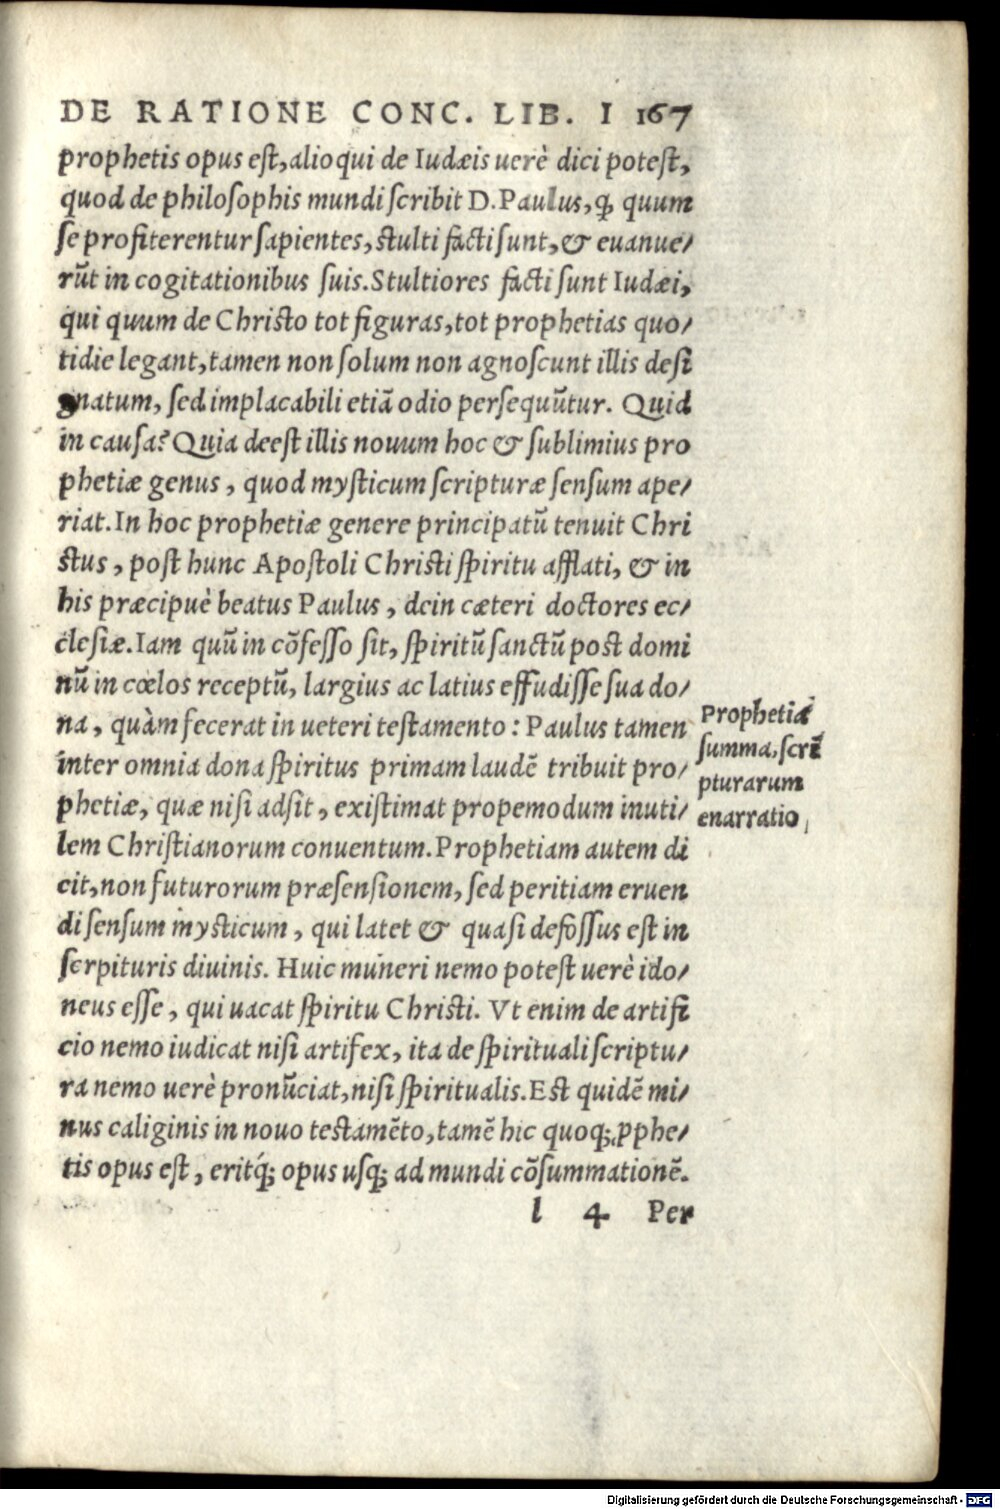 DE RATIONE CONC. LIB. I 167
prophetis opus eſt, alioqui de Iudæis uerè dici poteſt,
quod de philoſophis mundi ſcribit D. Paulus, ꝙ quum
ſe profiterentur ſapientes, ſtulti facti ſunt, & euanue/
rūt in cogitationibus ſuis. Stultiores facti ſunt Iudæi,
qui quum de Chriſto tot figuras, tot prophetias quo/
tidie legant, tamen non ſolum non agnoſcunt illis deſi
gnatum, ſed implacabili etiā odio perſequūtur. Quid
in cauſa? Quia deeſt illis nouum hoc & ſublimius pro
phetiæ genus, quod myſticum ſcripturæ ſenſum ape/
riat. In hoc prophetiæ genere principatū tenuit Chri
ſtus, poſt hunc Apoſtoli Chriſti ſpiritu afflati, & in
his præcipuè beatus Paulus, dein cæteri doctores ec/
cleſiæ. Iam quū in cōfeſſo ſit, ſpiritū ſanctū poſt domi
nū in cœlos receptū, largius ac latius effudiſſe ſua do/
na, quàm fecerat in ueteri teſtamento: Paulus tamen
inter omnia dona ſpiritus primam laudē tribuit pro/
phetiæ, quæ niſi adſit, exiſtimat propemodum inuti/
lem Chriſtianorum conuentum. Prophetiam autem di
cit, non futurorum præſenſionem, ſed peritiam eruen
di ſenſum myſticum, qui latet & quaſi defoſſus eſt in
ſcrpituris diuinis. Huic muneri nemo poteſt uerè ido/
neus eſſe, qui uacat ſpiritu Chriſti. Vt enim de artifi
cio nemo iudicat niſi artifex, ita de ſpirituali ſcriptu/
ra nemo uerè pronūciat, niſi ſpiritualis. Eſt quidē mi/
nus caliginis in nouo teſtamēto, tamē hic quoq; ꝓphe/
tis opus eſt, eritq́; opus uſq; ad mundi cōſummationē.
Prophetiæ
ſumma, ſcri
pturarum
enarratio
l 4 Per
Digitalisierung gefördert durch die Deutsche Forschungsgemeinschaft - DFG